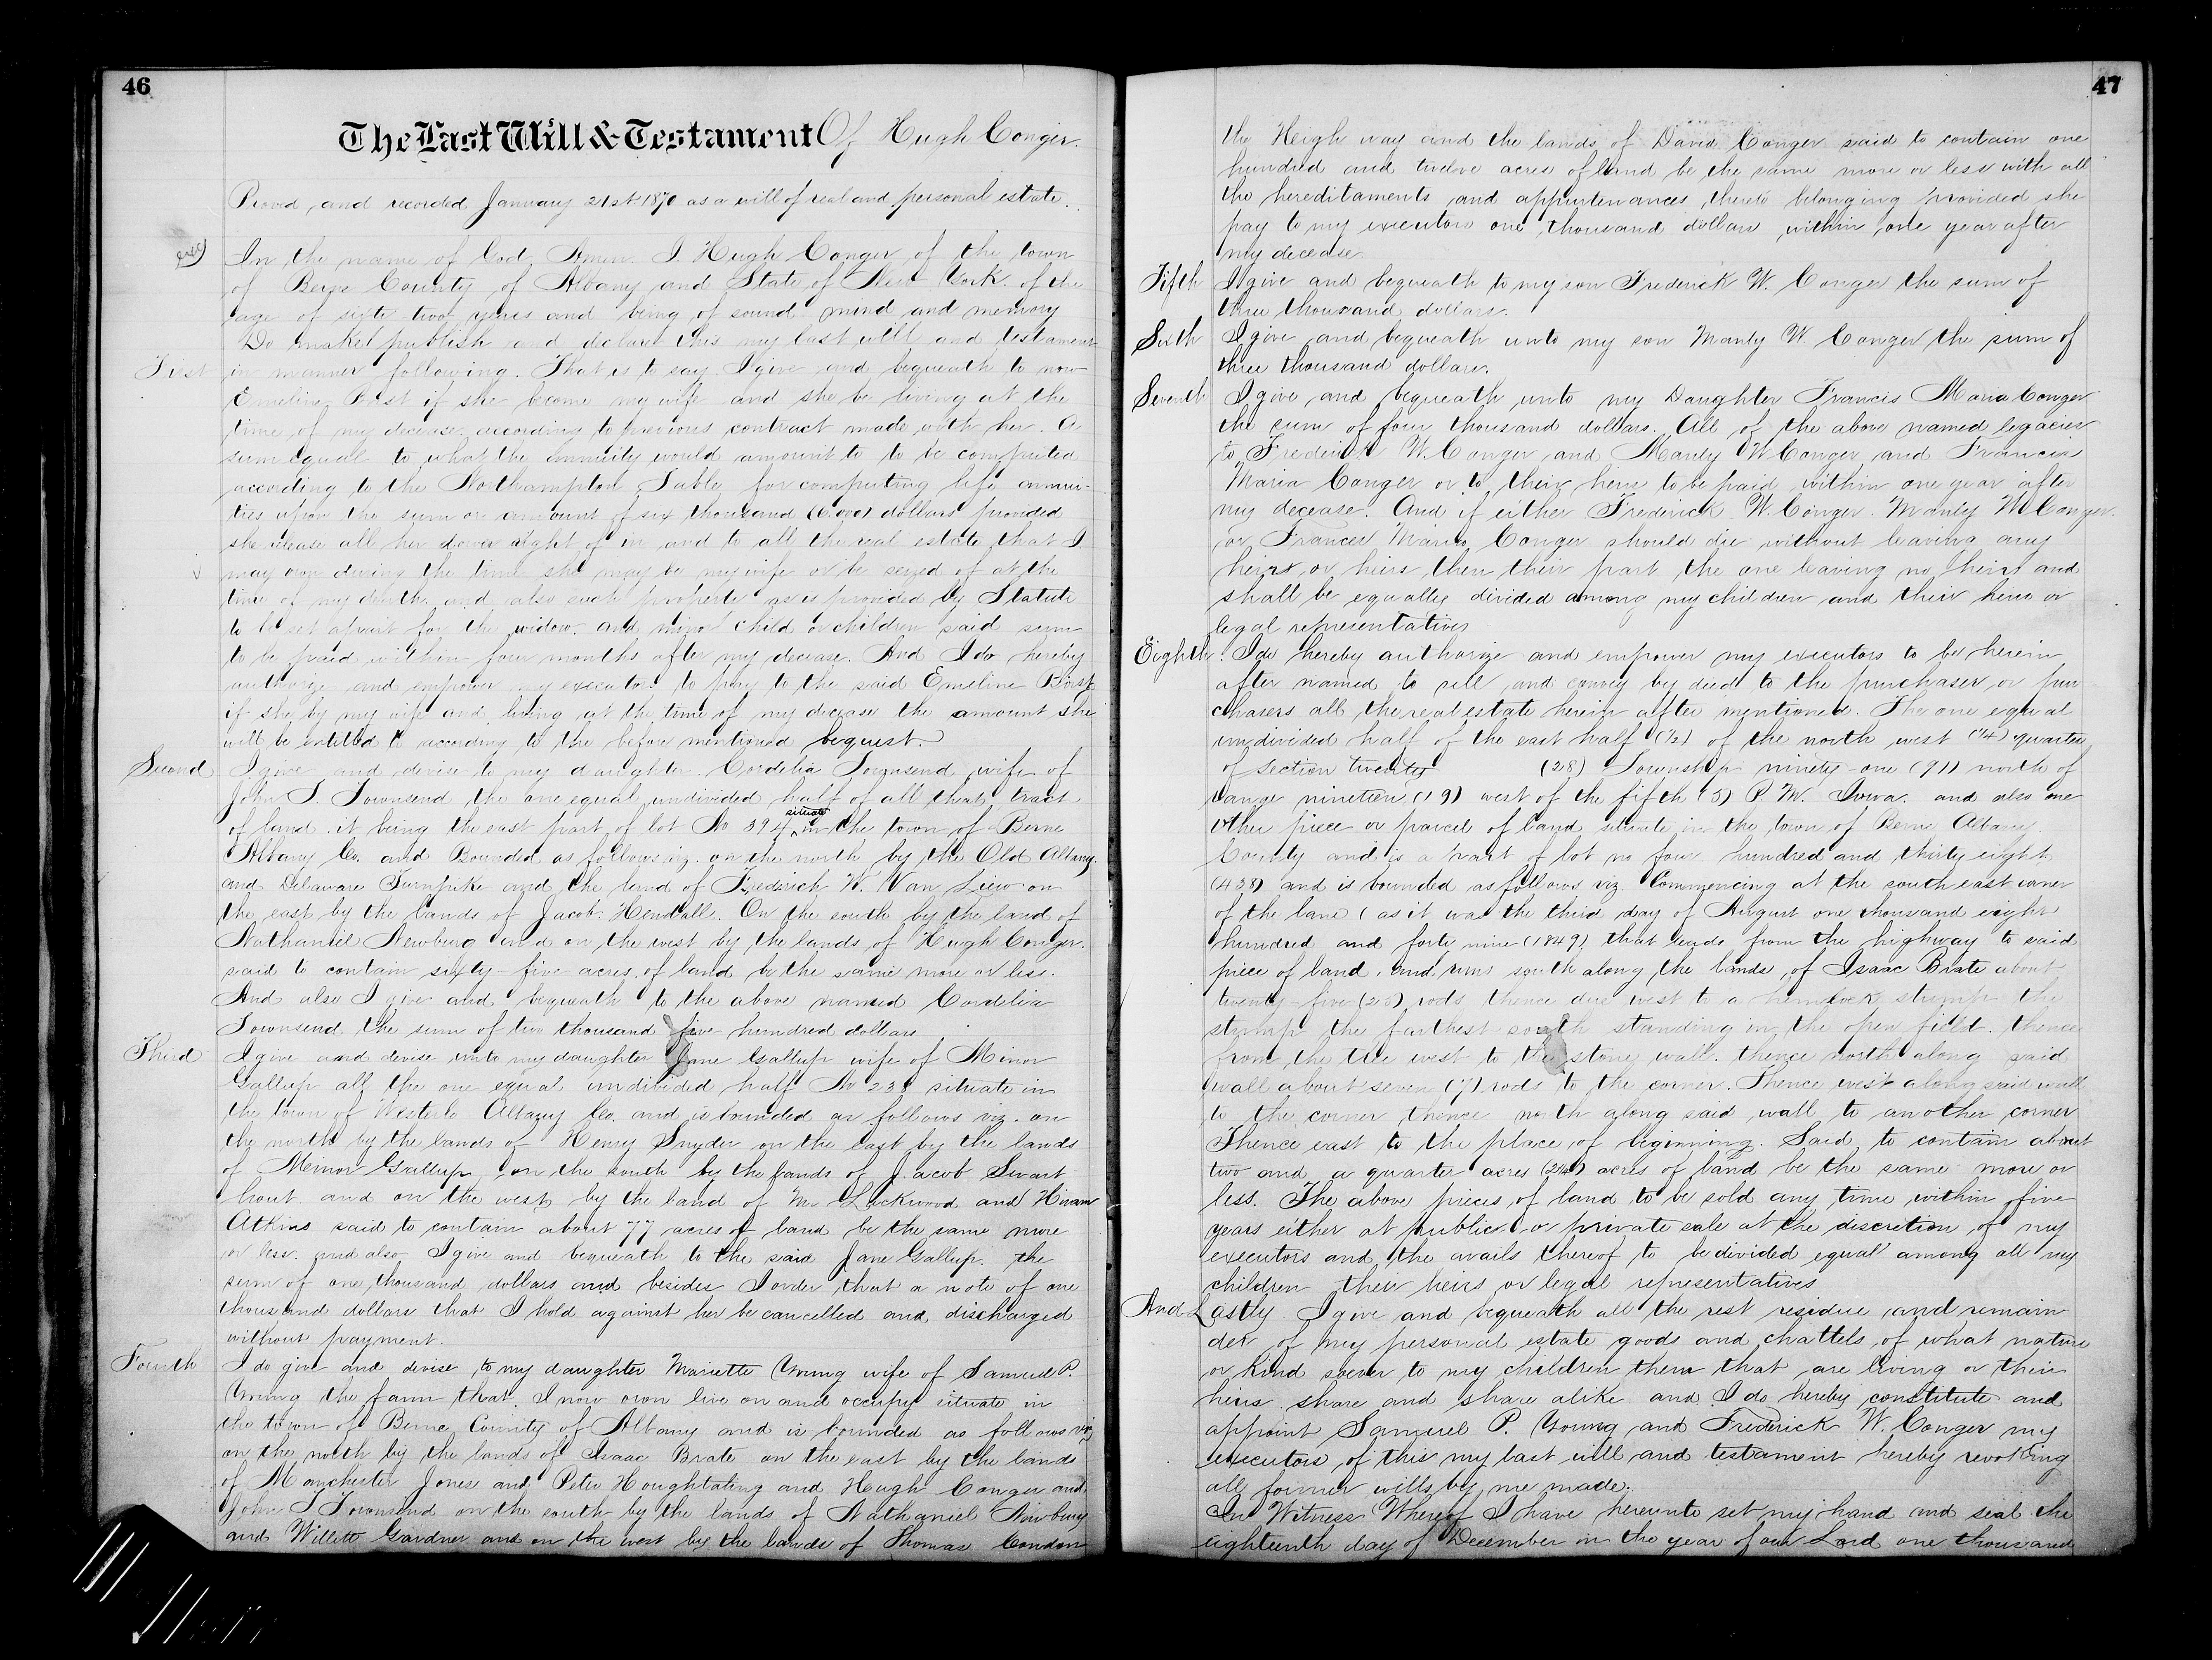 46
The Last Will & Testament Of Hugh Conger.
Proved and recorded January 21st 1870 as a will of real and personal estate.
In the name of God Amen. I Hugh Conger of the town
of Berne County of Albany and State of New York. of the
age of sixty two years and being of sound mind and memory
Do make publish and declare this my last will and testament
First in manner following. That is to say. I give and bequeath to now
Emeline Bost if she become my wife and she be living at the
time of my decease according to previous contract made with her. A
sum equal to what the annuity would amount to to be computed
according to the Northampton Table for computing life annui-
ties upon the sum or amount of six thousand (6,000) dollars provided
she release all her dower right of in and to all the real estate that I
may own during the time she may be my wife or be seized of at the
time of my death and also such property as is provided by Statute
to be set apart for the widow. and minor child or children said sum
to be paid within four months after my decease. And I do hereby
authorize and empower my executors to pay to the said Emeline Bost
if she by my wife and living at the time of my decease the amount she
will be entitled to according to the before mentioned bequest.
Second I give and devise to my daughter Cordelia Townsend wife of
John S. Townsend the one equal undivided half of all that tract
of land it being the east part of lot No 394 situate in the town of Berne
Albany Co. and Bounded as follows viz. on the north by the Old Albany
and Delaware Turnpike and the land of Frederick W. Van Liew on
the east by the lands of Jacob Hendall. On the south by the land of
Nathaniel Newburg and on the west by the lands of Hugh Conger.
said to contain sixty-five acres of land be the same more or less.
And also I give and bequeath to the above named Cordelia
Townsend the sum of two thousand five hundred dollars
Third I give and devise unto my daughter Jane Gallup wife of Minor
Gallup all the one equal undivided half No 238 situate in
the town of Westerlo Albany Co. and is bounded as follows viz. on
the north by the lands of Henry Snyder on the east by the lands
of Minor Gallup, on the south by the lands of Jacob Swart
hout and on the west by the land of Mr Lockwood and Hiram
Atkins said to contain about 77 acres of land be the same more
or less. and also I give and bequeath to the said Jane Gallup. the
sum of one thousand dollars and besides I order that a note of one
thousand dollars that I hold against her be cancelled and discharged
without payment.
Fourth I do give and devise to my daughter Mariette Young wife of Samuel P.
Young the farm that I now own live on and occupy situate in
the town of Berne County of Albany and is bounded as follows viz
on the north by the lands of Isaac Brate on the east by the lands
of Manchester Jones and Peter Houghtating and Hugh Conger and
John S Townsend on the south by the lands of Nathaniel Newbury
and Willett Gardner and on the west by the lands of Thomas Condon
47
the Heigh way and the lands of David Conger said to contain one
hundred and twelve acres of land be the same more or less with all
the hereditaments and appurtenances thereto belonging provided she
pay to my executors one thousand dollars within one year after
my decease.
Fifth I give and bequeath to my son Frederick W. Conger the sum of
three thousand dollars.
Sixth I give and bequeath unto my son Manly W. Conger the sum of
three thousand dollars.
Seventh I give and bequeath unto my Daughter Francis Maria Conger
the sum of four thousand dollars. All of the above named legacies
to Frederick W. Conger and Manly W Conger and Francis
Maria Conger or to their heirs to be paid within one year after
my decease. And if either Frederick W. Conger. Manly W Conger.
or Frances Maria Conger should die without leaving any
heirs or heirs then their part the one leaving no heirs and
shall be equally divided among my children and their heirs or
legal representatives
Eighth. I do hereby authorize and empower my executors to be herein
after named to sell and convey by deed to the purchaser or pur
chasers all the real estate herein after mentioned. The one equal
undivided half of the east half (1/2) of the north west (1/4) quarter
of section twenty (28) Township ninety-one (91) north of
range nineteen (19) west of the fifth (5) P. M. Iowa. and also one
other piece or parcel of land situate in the town of Berne Albany
County and is a part of lot no four hundred and thirty eight
(438) and is bounded as follows viz. Commencing at the south east corner
of the lane (as it was the third day of August one thousand eight
hundred and forty nine (1849) that leads from the highway to said
piece of land. and runs south along the lands of Isaac Brate about
twenty-five (25) rods thence due west to a hemlock stump the
stump the farthest south standing in the open field. thence
from the tree west to the stone wall. thence north along said
wall about seven (7) rods to the corner. Thence west along said wall
to the corner thence north along said wall to another corner
Thence east to the place of beginning. Said to contain about
two and a quarter acres (2 1/4) acres of land be the same more or
less. The above pieces of land to be sold any time within five
years either at public or private sale at the discretion of my
executors and the avails thereof to be divided equal among all my
children their heirs or legal representatives
And Lastly. I give and bequeath all the rest residue and remain
der of my personal estate goods and chattels of what nature
or kind soever to my children them that are living or their
heirs share and share alike and I do hereby constitute and
appoint Samuel P. Young and Frederick W. Conger my
executors of this my last will and testament hereby revoking
all former wills by me made.
In Witness Whereof I have hereunto set my hand and seal the
eighteenth day of December in the year of our Lord one thousand